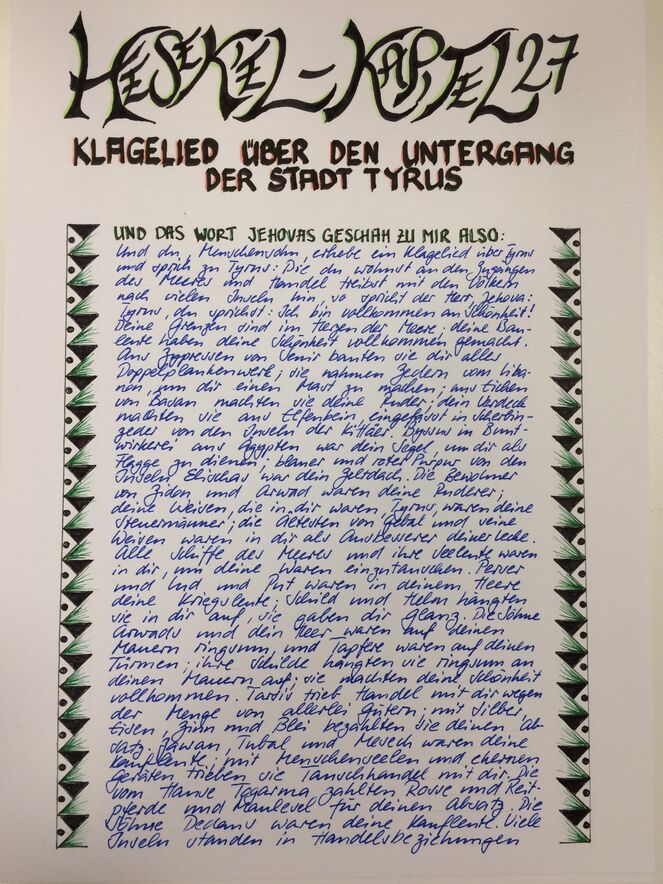 HESEKIEL-KAPITEL 27
KLAGELIED ÜBER DEN UNTERGANG
DER STADT TYRUS
UND DAS WORT JEHOVAS GESCHAH ZU MIR ALSO:
Und du, Menschensohn, erhebe ein Klagelied über Tyrus
und sprich zu Tyrus: Die du wohnst an den Zugängen
des Meeres und Handel treibst mit den Völkern
nach vielen Inseln hin, so spricht der Herr, Jehova:
Tyrus, du sprichst: Ich bin vollkommen an Schönheit!
Deine Grenzen sind im Herzen der Meere; deine Bau-
leute haben deine Schönheit vollkommen gemacht.
Aus Zypressen von Senir bauten sie dir alles
Doppelplankenwerk; sie nahmen Zedern vom Liba-
non, um dir einen Mast zu machen; aus Eichen
von Basan machten sie deine Ruder; dein Verdeck
machten sie aus Elfenbein, eingefasst in Scherbin-
zeder von den Inseln der Kittäer. Byssus in Bunt-
wirkerei aus Ägypten war dein Segel, um dir als
Flagge zu dienen; blauer und roter Purpur von den
Inseln Elischas war dein Zeltdach. Die Bewohner
von Zidon und Arwad waren deine Ruderer;
deine Weisen, die in dir waren, Tyrus, waren deine
Steuermänner; die Ältesten von Gebal und seine
Weisen waren in dir als Ausbesserer deiner Lecke.
Alle Schiffe des Meeres und ihre Seeleute waren
in dir, um deine Waren einzutauschen. Perser
und Lud und Put waren in deinem Heere
deine Kriegsleute; Schild und Helm hängten
sie in dir auf, sie gaben dir Glanz. Die Söhne
Arwads und dein Heer waren auf deinen
Mauern ringsum, und Tapfere waren auf deinen
Türmen; ihre Schilde hängten sie ringsum an
deinen Mauern auf; sie machten deine Schönheit
vollkommen. Tarsis trieb Handel mit dir wegen
der Menge von allerlei Gütern; mit Silber,
Eisen, Zinn und Blei bezahlten sie deinen Ab-
satz. Jawan, Tubal und Mesech waren deine
Kaufleute; mit Menschenseelen und ehernen
Geräten trieben sie Tauschhandel mit dir. Die
vom Hause Togarma zahlten Rosse und Reit-
pferde und Maulesel für deinen Absatz. Die
Söhne Dedans waren deine Kaufleute. Viele
Inseln standen in Handelsbeziehungen